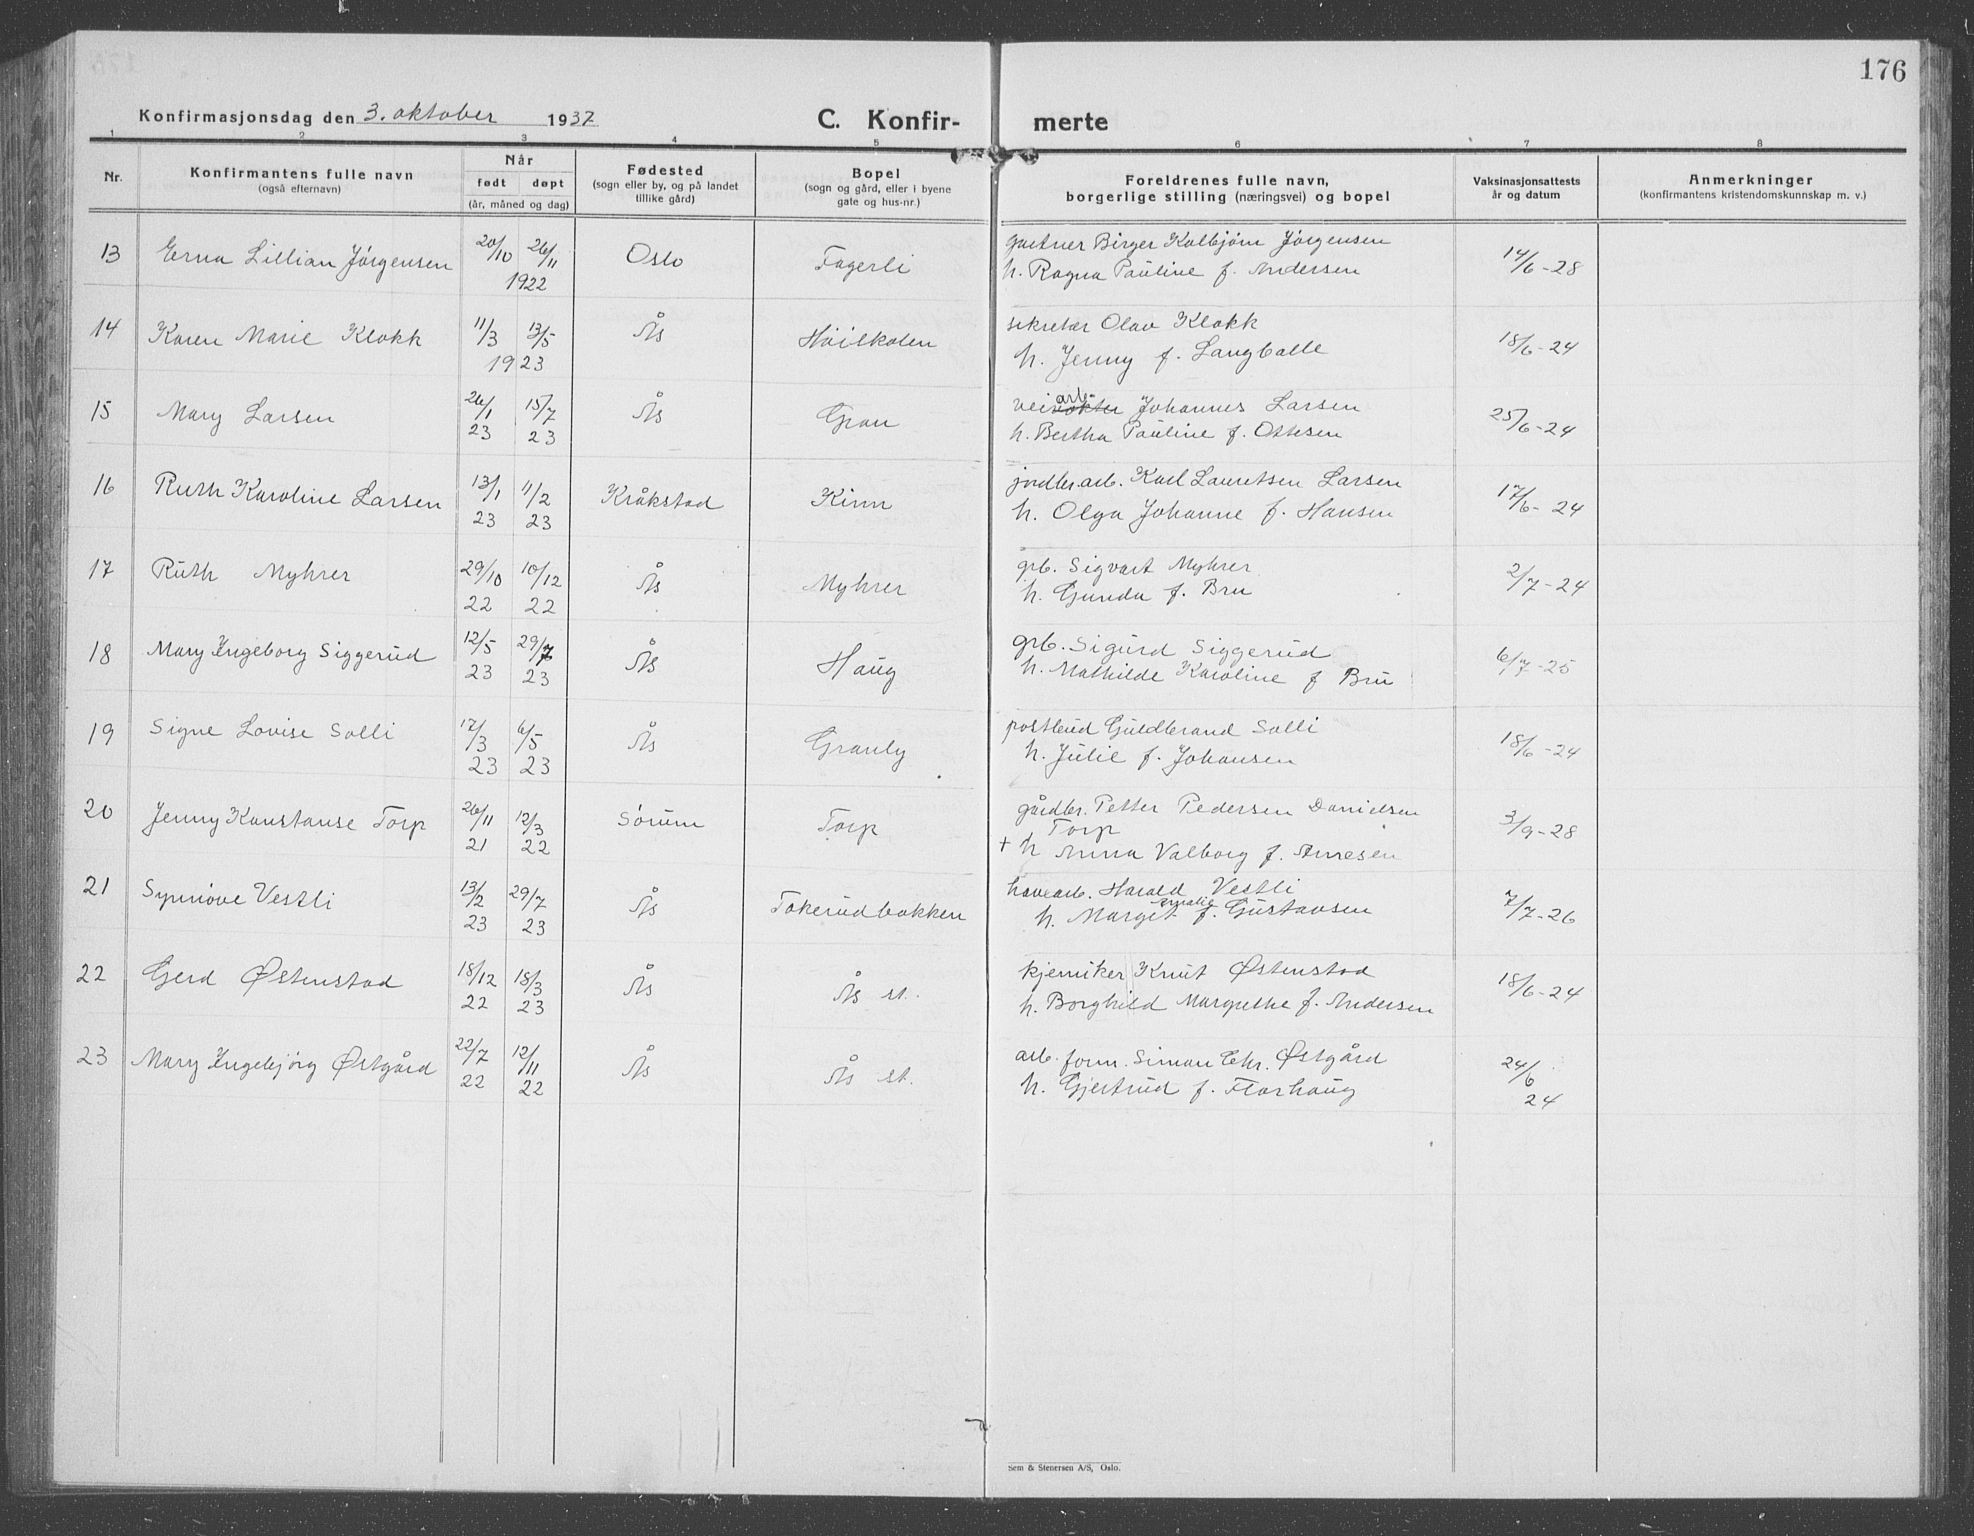 176
Konfirmasjonsdag den 3. oktober 1937 C. Konfir- merte
1 2 3 4 5 6 7 8
Nr. Konfirmantens fulle navn (også efternavn) Når født døpt (år, måned og dag) Fødested (sogn eller by, og på landet tillike gård) Bopel (sogn og gård, eller i byene gate og hus-nr.) Foreldrenes fulle navn, borgerlige stilling (næringsvei) og bopel Vaksinasjonsattests år og datum Anmerkninger (konfirmantens kristendomskunnskap m. v.)
13 Erna Lillian Jørgensen 20/10 26/11 1922 Oslo Fagerli gartner Birger Kolbjørn Jørgensen 14/6-28
h. Ragna Pauline f. Andersen
14 Karen Marie Klokk 11/3 13/5 1923 Ås sekretær Olav Klokk 18/6-24
h. Jenny f. Langballe
15 Mary Larsen 26/1 23 15/7 23 Ås Gran veivokter arb. Johannes Larsen 25/6-24
h. Bertha Pauline f. Ottesen
16 Ruth Karoline Larsen 13/1 23 11/2 23 Kråkstad Kinn jordbr.arb. Karl Lauretsen Larsen 17/6-24
h. Olga Johanne f. Hansen
17 Ruth Myhrer 29/10 22 10/12 22 Ås Myhrer grb. Sigvart Myhrer 2/7-24
h. Gunda f. Bru
18 Mary Ingeborg Siggerud 12/5 23 29/7 23 Ås Haug grb. Sigurd Siggerud 6/7-25
h. Mathilde Karoline f Bru
19 Signe Lovise Solli 17/3 23 6/5 23 Ås Granly postbud Guldbrand Solli 18/6-24
h. Julie f. Johansen
20 Jenny Konstanse Torp 26/11 21 12/3 22 Sørum Torp gårdbr. Petter Pedersen Danielsen 3/9-28
Torp
+ h Anna Valborg f. Anresen
21 Synnøve Vestli 13/2 23 29/7 23 Ås Tokerudbakken havearb. Harald Vestli 7/7-26
h. Margit Amalie f. Gustavsen
22 Gerd Østenstad 18/12 22 18/3 23 Ås Ås st. kjemiker Knut Østenstad 18/6-24
h. Borghild Margrethe f. Andersen
23 Mary Ingebjørg Østgård 22/7 22 12/11 22 Ås Ås st. arb. form. Simon Chr. Østgård 24/6 24
h. Gjertrud f. Florhaug
Sem & Stenersen A/S, Oslo.